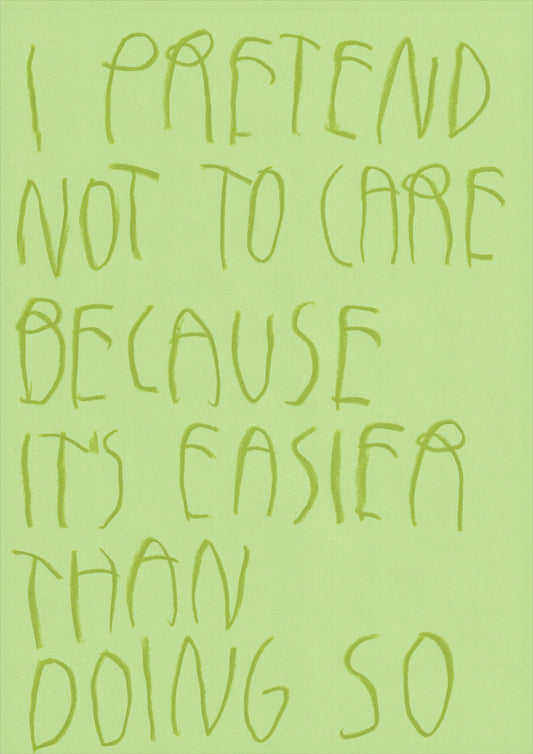 I PRETEND
NOT TO CARE
BECAUSE
IT'S EASIER
THAN
DOING SO